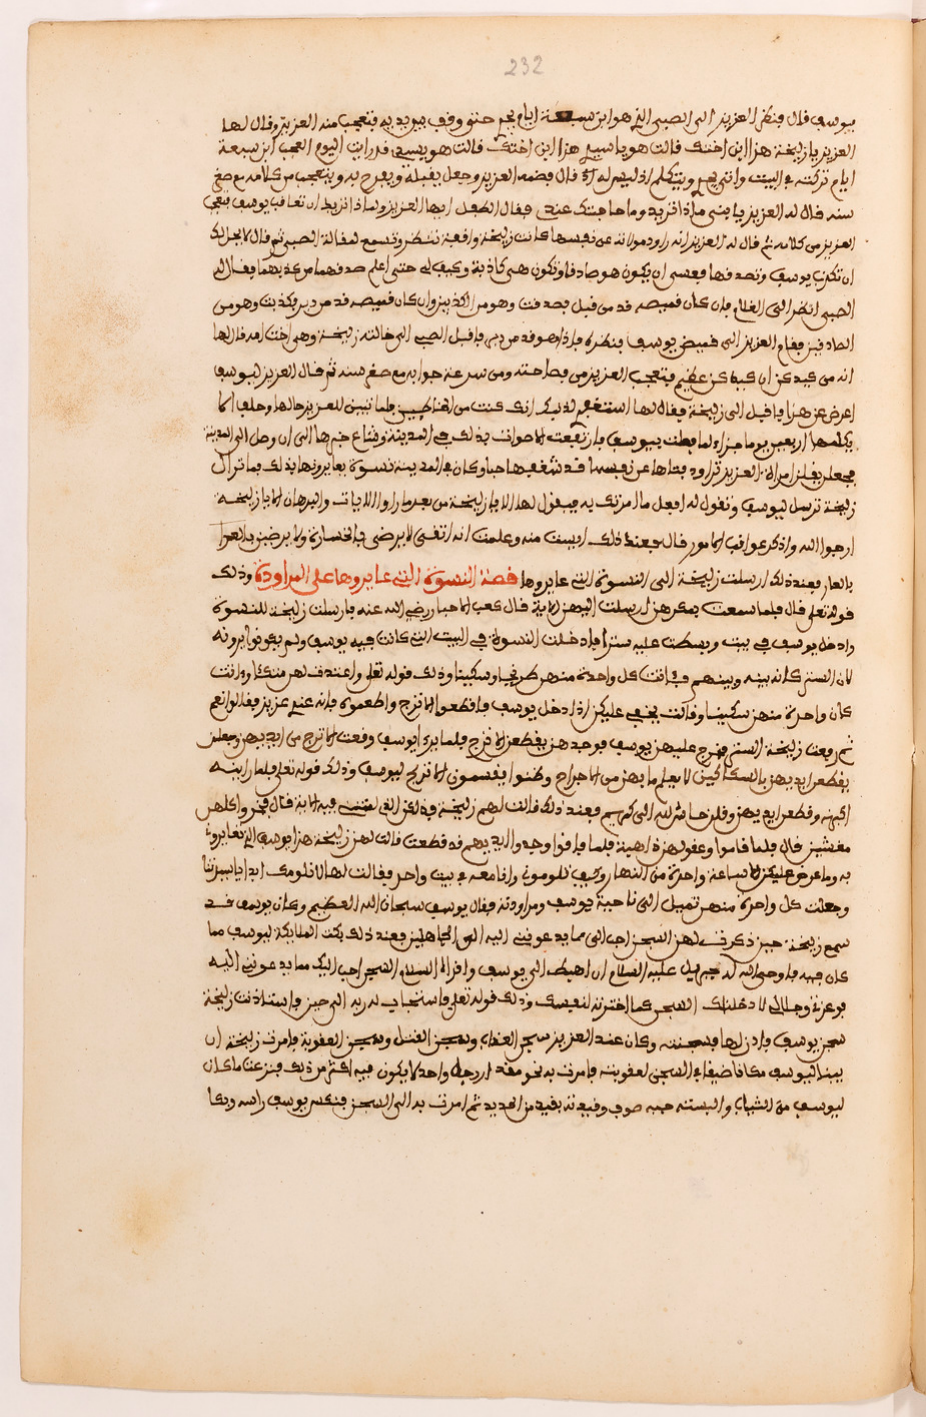 232
يوسف قال فنظر العزيز الى الصبي الذي هو ابن سبعة ايام يجري حتى وقف بين يديه فتعجب منه العزيز وقال لها
العزيز يا زليخة هذا ابن اختك قالت هو يا سيدي هذا ابن اختك قالت هو يسعى قد رايت اليوم العجب ابن سبعة
ايام تركته في البيت واتى يجري ويتكلم اذ ليس له قال فضمه العزيز وجعل يقبله ويفرح به ويتعجب من كلامه مع صغر
سنه قال له العزيز يا بني ماذا تريد وما حاجتك عندي فقال الطفل ايها العزيز ولماذا تريد ان تعاقب يوسف فتعجب
العزيز من كلامه ثم قال له العزيز انه راود مولاته عن نفسها كانت زليخة واقفة تنظر وتسمع لمقالة الصبي ثم قال لا يحل لك
ان تكذب يوسف وتصدقها فعسى ان يكون هو صادقا وتكون هي كاذبة وكيف لي حتى اعلم صدقهما من كذبهما فقال له
الصبي انظر الى الغلام فان كان قميصه قد من قبل فصدقت وهو من الكاذبين وان كان قميصه قد من دبر فكذبت وهو من
الصادقين فقام العزيز الى قميص يوسف فنظره فاذا هو قد من دبر فاقبل الصبي الى خالته زليخة وهي اخت امه قال لها
انه من كيدكن ان كيدكن عظيم فتعجب العزيز من فصاحته ومن سرعة جوابه مع صغر سنه ثم قال العزيز ليوسف
اعرض عن هذا واقبل الى زليخة فقال لها استغفري لذنبك انك كنت من الخاطيين فلما تبين للعزيز حالها وحلف الا
يكلمها اربعين يوما جزاء لما فعلت بيوسف فارتفعت الاصوات بذلك في المدينة وشاع خبرها الى ان وصل الى المدينة
فجعلن يقلن امراة العزيز تراود فتاها عن نفسه قد شغفها حبا وكان في المدينة نسوة يعايرونها بذلك فما تزال
زليخة ترسل ليوسف وتقول له افعل ما امرتك به فيقول لها الا يا زليخة من بعد ما راوا الايات والبرهان الا يا زليخة
ارجوا الله واذكر عواقب الامور قال فعند ذلك ايست منه وعلمت انه اتقى لا يرضى بالخسارة ولا يرضين بالعرا
بالعار فعند ذلك ارسلت زليخة الى النسوة التي عايروها قصة النسوة التي عايروها على المراودة وذلك
قوله تعلى قال فلما سمعت بمكرهن ارسلت اليهن الاية قال كعب الاحبار رضي الله عنه فارسلت زليخة للنسوة
وادخل يوسف في بيت وبسطت عليه سترا فادخلت النسوة في البيت التي كانت فيه يوسف ولم يكونوا يرونه
لان الستر كان بينه وبينهم فاتت كل واحدة منهن طرنجا وسكينا وذلك قوله تعلى واعتدت لهن متكئا واتت
كل واحدة منهن سكينا وقالت بخفي عليكن اذا دخل يوسف فاقطعوا الاترج واطعموه فانه عندي عزيز فقالوا نعم
ثم رفعت زليخة الستر فخرج عليهن يوسف فوجدهن يقطعن الاترج فلما يرى يوسف وقعت الاترج من ايديهن وجعلن
يقطعن ايديهن بالسكاكين لا يعلم ما بهن من الاجراح وظنوا يقسمون الاتريج ليوسف وذلك قوله تعلى فلما راينه
اكبرنه وقطعن ايديهن وقلن حاش لله الى كريم فعند ذلك قالت لهم زليخة فذلكن الذي لمتنني فيه الاية قال فخروا كلهن
مغشيين قال فلما قاموا وعقولهن ذاهبة فلما فاقوا وجدوا ايديهم قد قطعت قالت لهن زليخة هذا يوسف الذي تعايروني
به وما عرض عليكن الا ساعة واحدة من النهار وكيف تلوموني وانا معه في بيت واحد فقالت لها لا نلومك ابدا يا سيدتنا
وجعلت كل واحدة منهن تميل الى ناحية يوسف ومراودته فقال يوسف سبحان الله العظيم وكان يوسف قد
سمع زليخة حين ذكرت لهن السجن احب الي مما يدعونني اليه الى الجاهلين فعند ذلك بكت الملايكة ليوسف مما
كان فيه فاوحى الله الى جبريل عليه السلام ان اهبط الى يوسف واقراه السلام السجن احب اليك مما يدعونني اليه
فوعزتي وجلالي لادخلنك السجن كما اخترته لنفسك وذلك قوله تعلى فاستجاب له ربه الى حين فاستاذنت زليخة
سجن يوسف فاذن لها فسجنته وكان عند العزيز سجن العذاب وسجن القتل وسجن العقوبة فامرت زليخة ان
يبنا ليوسف مكانا ضيقا في السجن لعقوبته فامرت به نحو مقدار رجل واحد لا يكون فيه اكثر من ذلك فنزعت ما كان
ليوسف من الثياب والبسته جبة صوف وقيدته بقيد من الحديد ثم امرت به الى السجن فنكس يوسف راسه وبكا